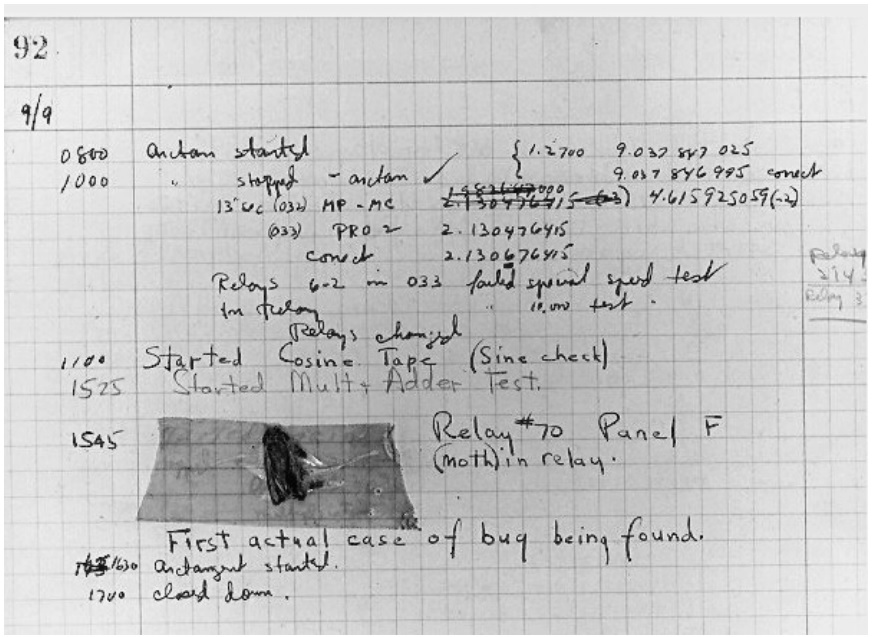 92
9/9
0800 arctan started { 1.2700 9.037 847 025
1000 " stopped - arctan ✓ 9.037 846 995 correct
13"uc (032) MP - MC 2.130476415 (-3) 4.615925059(-2)
(033) PRO 2 2.130476415
correct 2.130676415
Relays 6-2 in 033 failed special speed test
in relay " 10.000 test .
Relays changed
1100 Started Cosine Tape (Sine check)
1525 Started Mult + Adder Test.
1545 Relay #70 Panel F
(moth) in relay.
First actual case of bug being found.
1630 arctangent started.
1700 closed down.
Relay
Relay 3